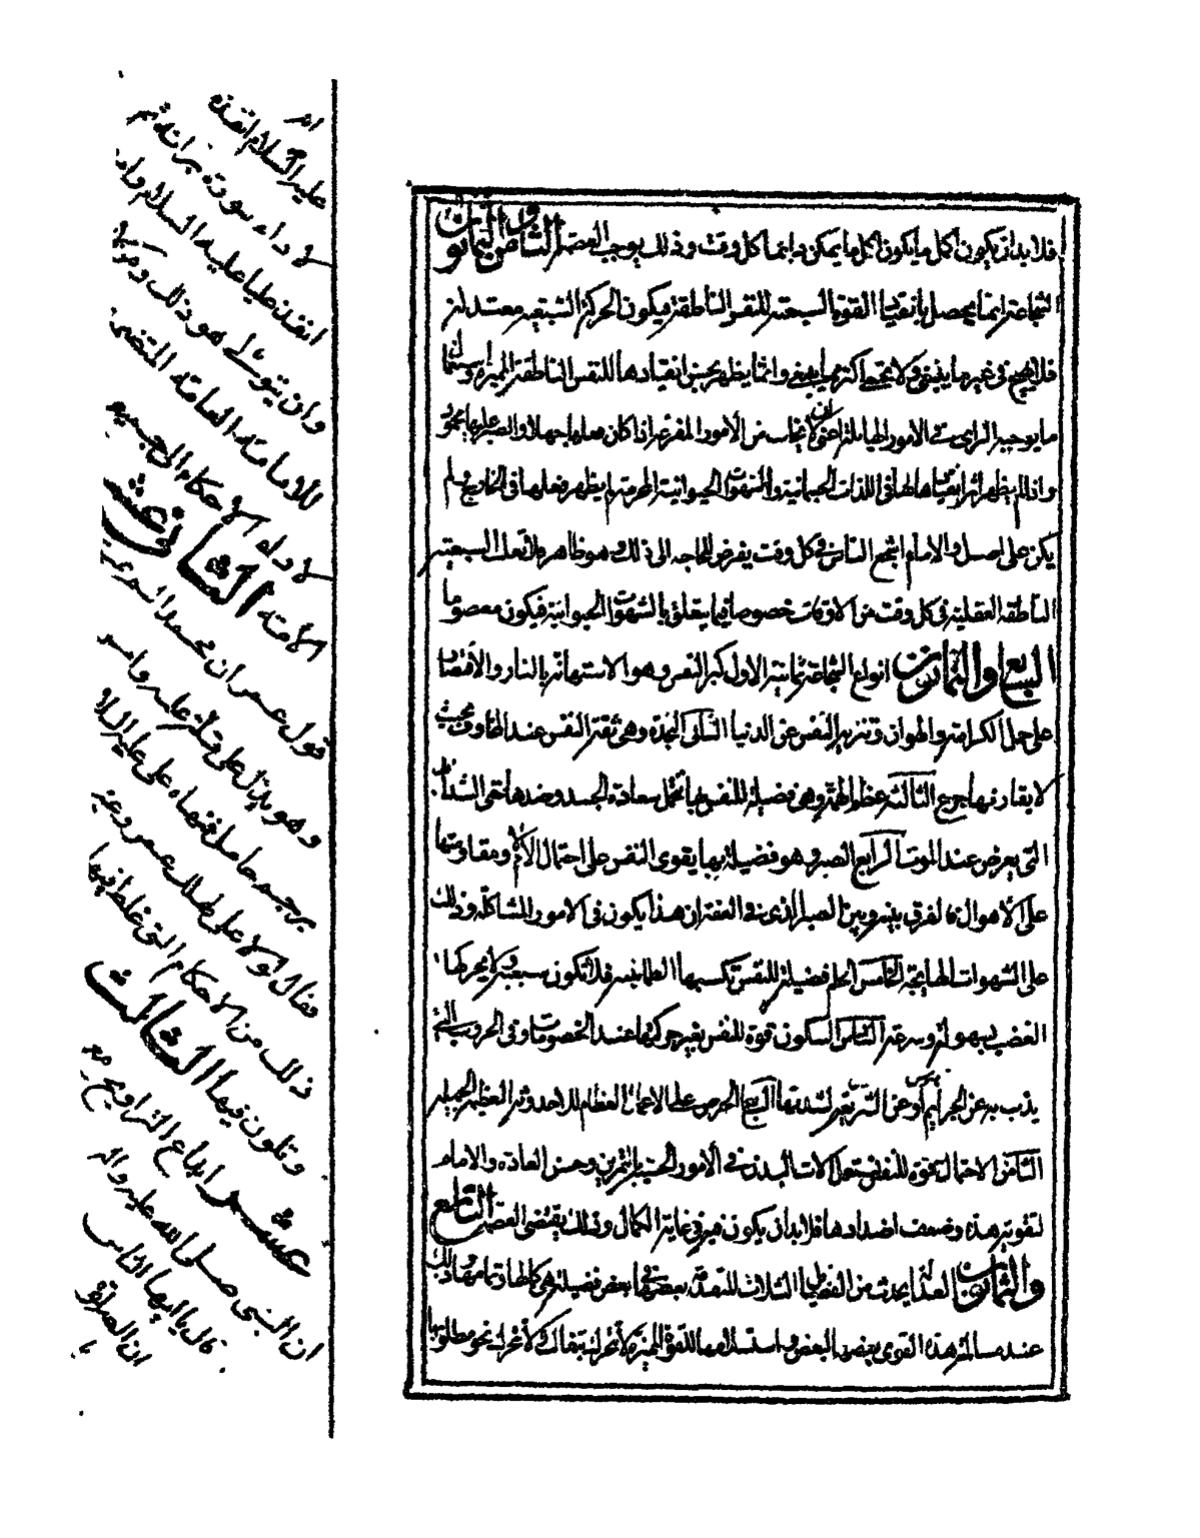 فلا بد ان يكون اكمل ما يكون اكمل ما يمكن دائما كل وقت وذلك يوجب العصمة الثامن والثمانون
الشجاعة انما يحصل بانقياد القوة السبعية للنفس الناطقة فيكون الحركة السبعية معتدلة
فلا يهيج في غير ما ينبغي ولا اكثر مما ينبغي وانما يظهر بحسن انقيادها للنفس الناطقة المميزة واستعمال
ما يوجبه الراى في الامور الهايلة اعنى ان لا يخاف من الأمور المفزعة اذا كان فعلها جميلا والصبر عليها محمود
واذا لم يظهر اثر انقيادها لها في اللذات الجسمانية والشهوات الحيوانية المحرمة لم يظهر فعلها في الخارج ولم
يكن على اصل والامام اشجع الناس في كل وقت يفرض للحاجة الى ذلك وهو ظاهر فلا تعد السبعية
الناطقة العقلية في كل وقت من الاوقات خصوصا فيما يتعلق بالشهوات الحيوانية فيكون معصوما
السابع والثمانون انواع الشجاعة ثمانية الاول كبر النفس وهو الاستهانة باليسار والاقتدار
على حمل الكرامة والهوان وتنزيه النفس عن الدنيا الثانى النجدة وهى ثقة النفس عند المخاوف بحيث
لا يقارنها جزع الثالثة عظم الهمة وهى فضيلة للنفس بها تحمل سعادة الجسد وضدها حتى الشدائد
التى يعرض عند الموت الرابع الصبر وهو فضيلة بها يقوى النفس على احتمال الآلام ومقاومتها
على الاهوال والفرق بينه وبين الصبر الذى في العفة ان هذا يكون في الامور المشاكلة وذلك
على الشهوات الهايجة الخامس الحلم فضيلة للنفس تكسبها الطمانينة فلا تكون سبعية ولا يحركها
الغضب بسهولة وسرعة السادس السكون قوة للنفس يعسر حركتها عند الخصومات وفي الحروب التى
يذب بها عن الحريم او عن الشريعة لشدتها السابع الحرص على الاعمال العظام للاحدوثة العظيمة الجميلة
الثامن الاحتمال قوة للنفس تستعمل آلات البدن في الأمور الحسية بالتمرين وحسن العادة والامام
لتقوية هذه وضعف اضدادها فلا بد ان يكون فيه في غاية الكمال وذلك يقتضى العصمة التاسع
والثمانون العدالة يحدث من الفضايل الثلاث المتقدمة بعضها في بعض فضيلة هى كمالها وتمامها وذلك
عند مسالمة هذه القوى بعضها لبعض واستسلامها للقوة المميزة لا تتحرك نحو مطلوبها
امر
عليه السلام انفذه
لاداء سورة براءة ثم
انفذ عليا عليه السلام واد
وان يتولى هو ذلك ومن
للامامة العامة المتضمن
لاداء الاحكام الى جميع
الأمة الثانى عشر
قول عمر ان محمدا لم
وهو يدل على قلة علمه وامر
برجم حامل فنهاه على عليه السلا
فقال لولا على لهلك عمر وغير
ذلك من الاحكام التى غلط فيها
وتلون فيها الثالث
عشر ابداع التراويح مع
ان النبى صلى الله عليه واله
قال يا ايها الناس
ان الصلوة